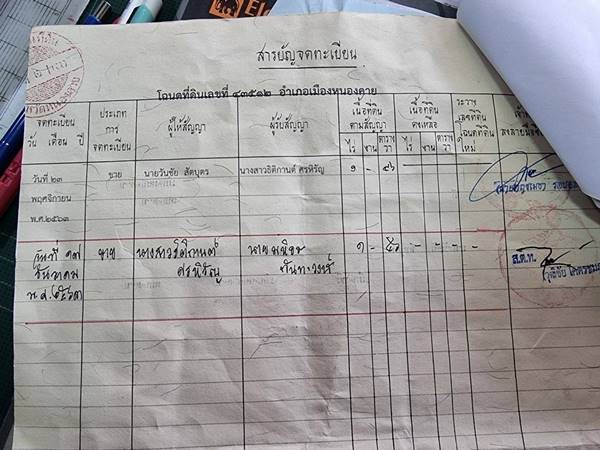 สารบัญจดทะเบียน
โฉนดที่ดินเลขที่ ๔๓๕๑๒ อำเภอเมืองหนองคาย
จดทะเบียน
วัน เดือน ปี
ประเภท
การ
จดทะเบียน
ผู้ให้สัญญา
ผู้รับสัญญา
เนื้อที่ดิน
ตามสัญญา
ไร่ งาน ตาราง
วา
เนื้อที่ดิน
คงเหลือ
ไร่ งาน ตาราง
วา
ระวาง
เลขที่ดิน
โฉนดที่ดิน
ใหม่
วันที่ ๒๓
พฤศจิกายน
พ.ศ.๒๕๖๓
ขาย
นายวันชัย สัตบุตร
นางสาวธิติกานต์ ศรหิรัญ
๑ - ๕๖
วันที่ ๑๗
ธันวาคม
พ.ศ.๒๕๖๓
ขาย
นางสาวธิติกานต์
ศรหิรัญ
๑ - ๕๖ - - - -
ส.ต.ท.